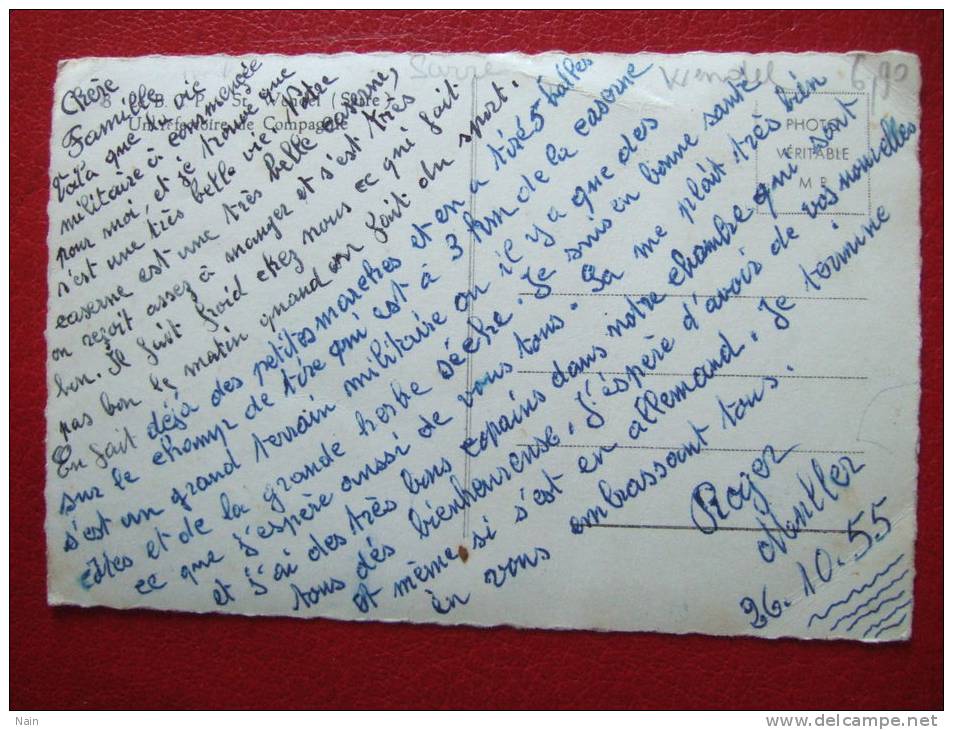 Sarre
Wendel
6,90
B. P. St. Wendel (Sarre)
Un réfectoire de Compagnie
PHOTO
VÉRITABLE
M B
Chère
Famille
Voilà que la vie
militaire à commencée
pour moi, et je trouve que
s'est une très belle vie. Notre
caserne est une très belle caserne,
on reçoit assez à manger et s'est très
bon. Il fait froid chez nous ce qui fait
pas bon le matin quand on fait du sport.
En fait déjà des petites marches et en a tiré 5 balles
sur le champ de tire qui est à 3 km de la caserne
s'est un grand terrain militaire ou il y a que des
côtes et de la grande herbe sèche. Je suis en bonne santé
ce que j'espère aussi de vous tous. Sa me plait très bien
et j'ai des très bons copains dans notre chambre qui sont
tous dés bienheureuse. J'éspère d'avoir de vos nouvelles
et même si s'est en allemand. Je termine
en vous embrassant tous.
Roger
26.10.55
Nain
www.delcampe.net